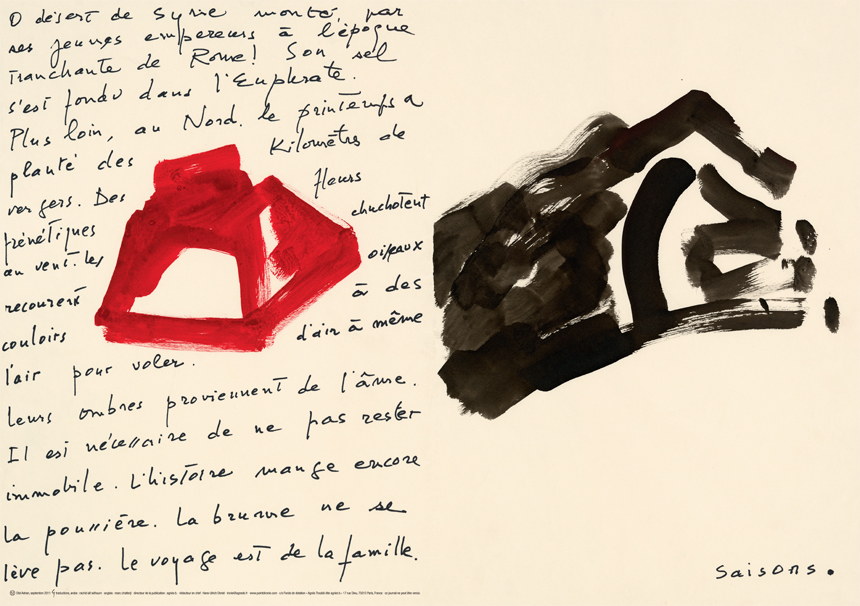 O désert de Syrie monté, par
ses jeunes empereurs à l'époque
Tranchante de Rome! Son sel
s'est fondu dans l'Euphrate.
Plus loin, au Nord. le printemps a
planté des Kilomètrs de
vergers. Des fleurs
frénétiques chuchotent
au vent. les oiseaux
recourent à des
couloirs d'air à même
l'air pour voler.
Leurs ombres proviennent de l'âme.
Il est nécessaire de ne pas rester
immobile. L'histoire mange encore
la poussière. La brume ne se
lève pas. Le voyage est de la famille.
saisons.